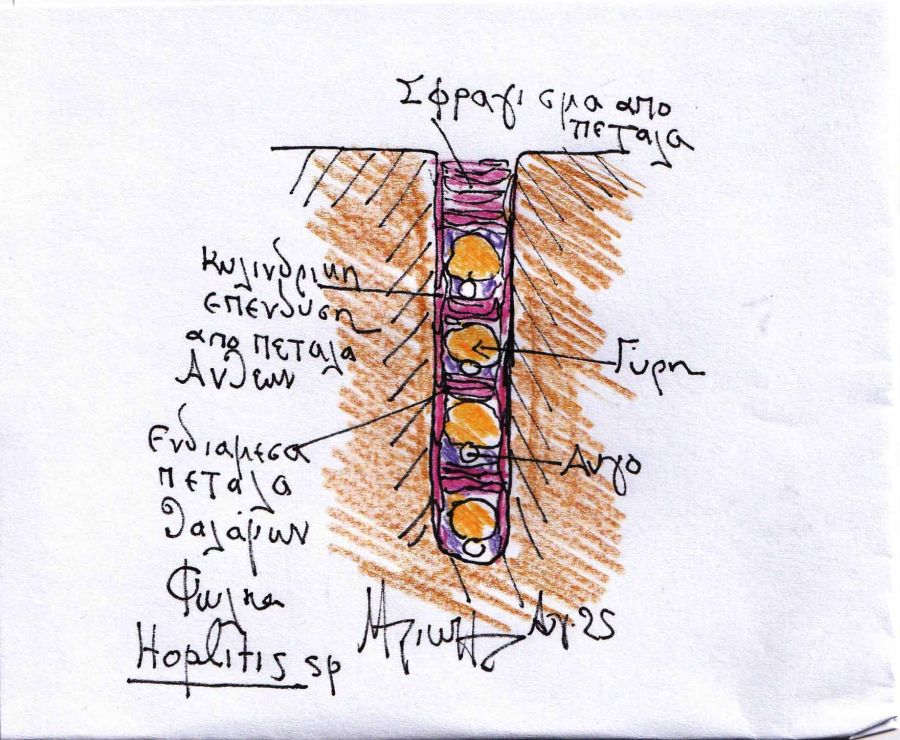 Σφραγισμα απο
πεταλα
Κυλινδρικη
επενδυση
απο πεταλα
Ανθεων
Γυρη
Ενδιαμεσα
πεταλα
θαλάμων
Αυγο
Φωλια
Hoplitis sp
Αυγ. 25